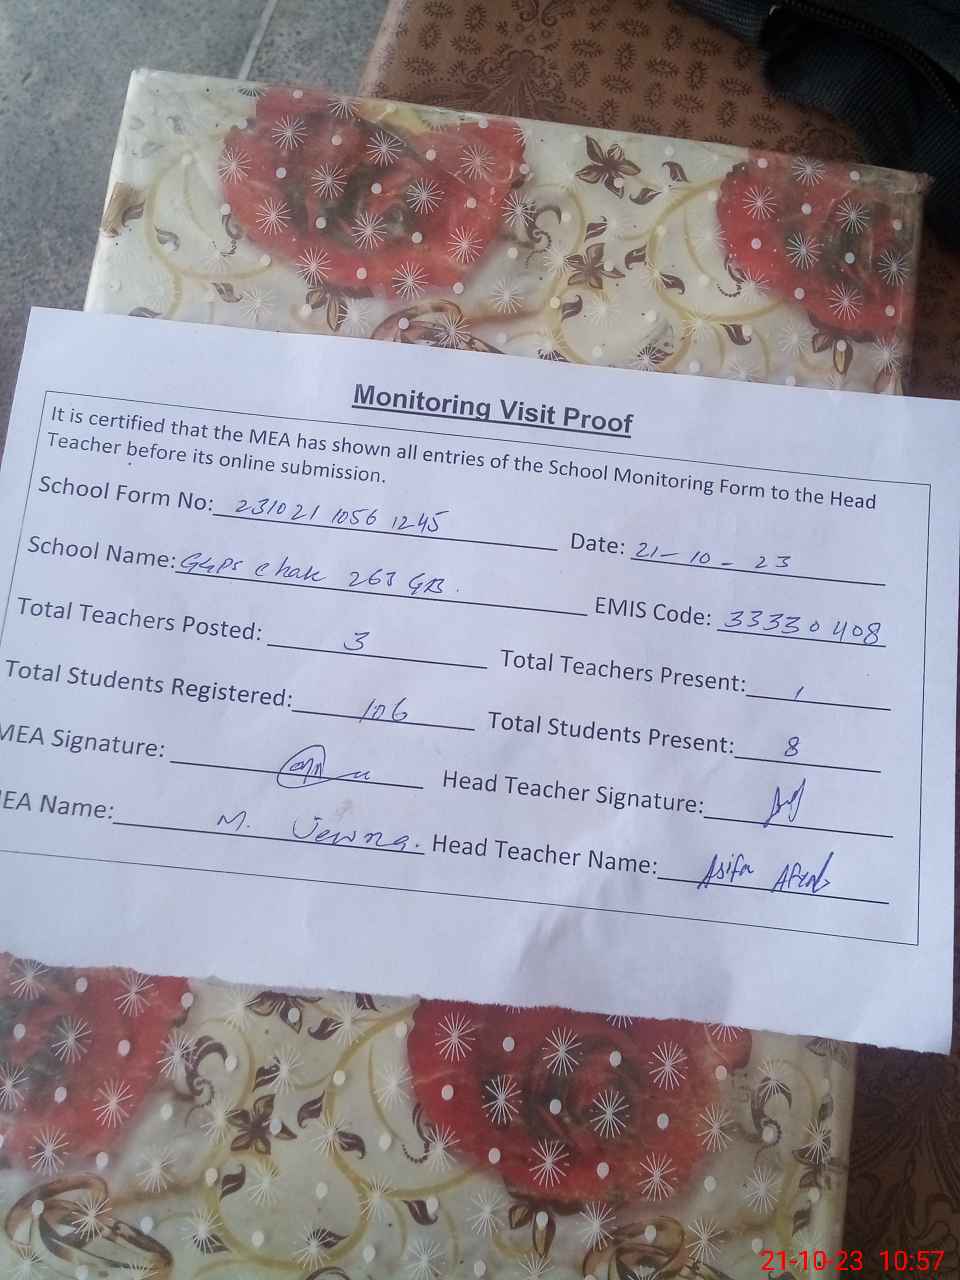 Monitoring Visit Proof
It is certified that the MEA has shown all entries of the School Monitoring Form to the Head
Teacher before its online submission.
School Form No: 231021 1056 1245 Date: 21-10-23
School Name: GGPS Chak 263 GB. EMIS Code: 33330408
Total Teachers Posted: 3 Total Teachers Present: 1
Total Students Registered: 106 Total Students Present: 8
MEA Signature: Head Teacher Signature:
EA Name: M. Head Teacher Name: Asifa
21-10-23 10:57